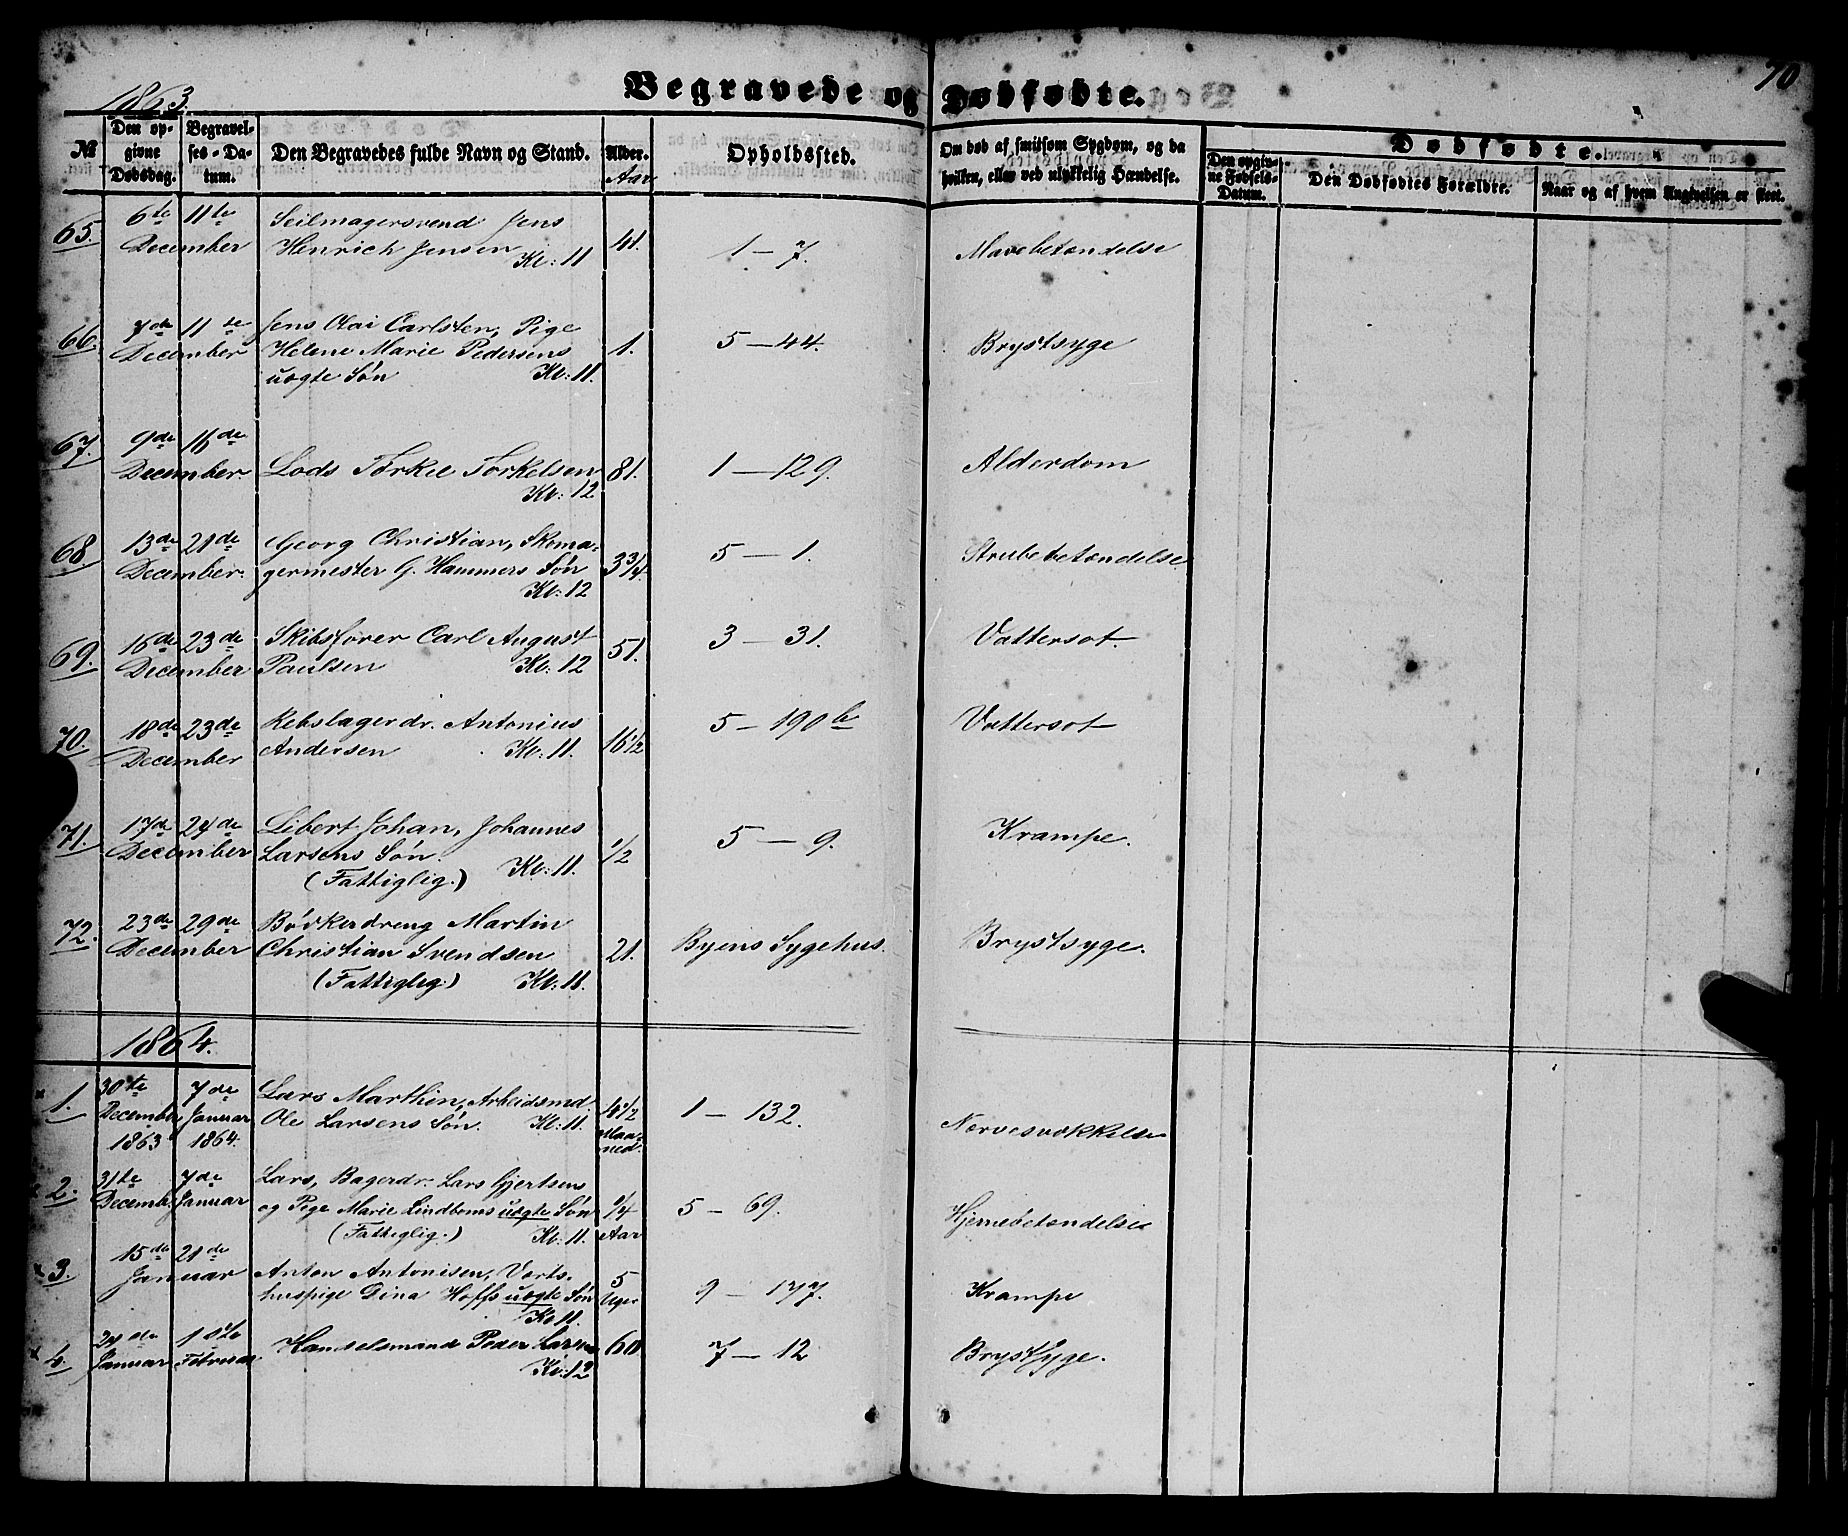 70
1863.
Begravede og Dødfødte.
№
Den opgivne Dødsdag.
Begravelses-Datum.
Den Begravedes fulde Navn og Stand.
Alder. Aar
Opholdssted.
Om død af smitsom Sygdom, og da hvilken, eller ved ulykkelig Hændelse.
Dødfødte.
Den opgivne Fødsels-Datum.
Den Dødfødtes Forældre.
Naar og af hvem Angivelsen er skeet.
65. 6te 11te Seilmagersvend Jens
December Henrich Jensen Kl: 11 41. 1 – 7. Mavebetændelse
66. 7de 11te Jens Olai Carlsten, Pige
December Helene Marie Pedersens 1. 5 – 44. Brystsyge
uægte Søn Kl: 11.
67. 9de 16de
December. Lods Torkel Torkelsen 81. 1 – 129. Alderdom
Kl: 12
68. 13de 21de Georg Christian, Skoma-
December. germester G. Hammers Søn 3 3/4 5 – 1. Strubebetændelse
Kl: 12
69. 16de 23de Skibsfører Carl August
December Paulsen Kl: 12 51. 3 – 31. Vattersot.
70. 18de 23de Rebslagerdr. Antonius
December Andersen Kl: 11. 16 1/2 5 – 190 b Vattersot
71. 17de 24de Libert Johan, Johannes
December Larsens Søn. Kl: 11. 1/2 5 – 9. Krampe.
(Fattiglig.)
72. 23de 29de Bødkerdreng Martin
December Christian Svendsen 21. Byens Sygehus. Brystsyge.
(Fattiglig) Kl: 11.
1864.
1. 30te 7de Lars Marthin, Arbeidsmd.
December Januar Ole Larsens Søn. Kl: 11. 4 1/2 1 – 132. Nervesvækkelse
1863 1864. Maaned.
2. 31te 7de Lars, Bagerdr. Lars Gjertsens
Decembr Januar og Pige Marie Lindboms uægte Søn 1/4 5 – 69. Hjernebetændelse
(Fattiglig.) Kl: 11. Aar
3. 15de 21de
Januar Anton Antonisen, Verts- 5 9 – 197. Krampe
huspige Dina Hoffs uægte Søn Uger
Kl: 11.
4. de 1ste Handelsmand Peder Larsen 60 7 – 12 Brystsyge.
Januar Februar Kl: 12